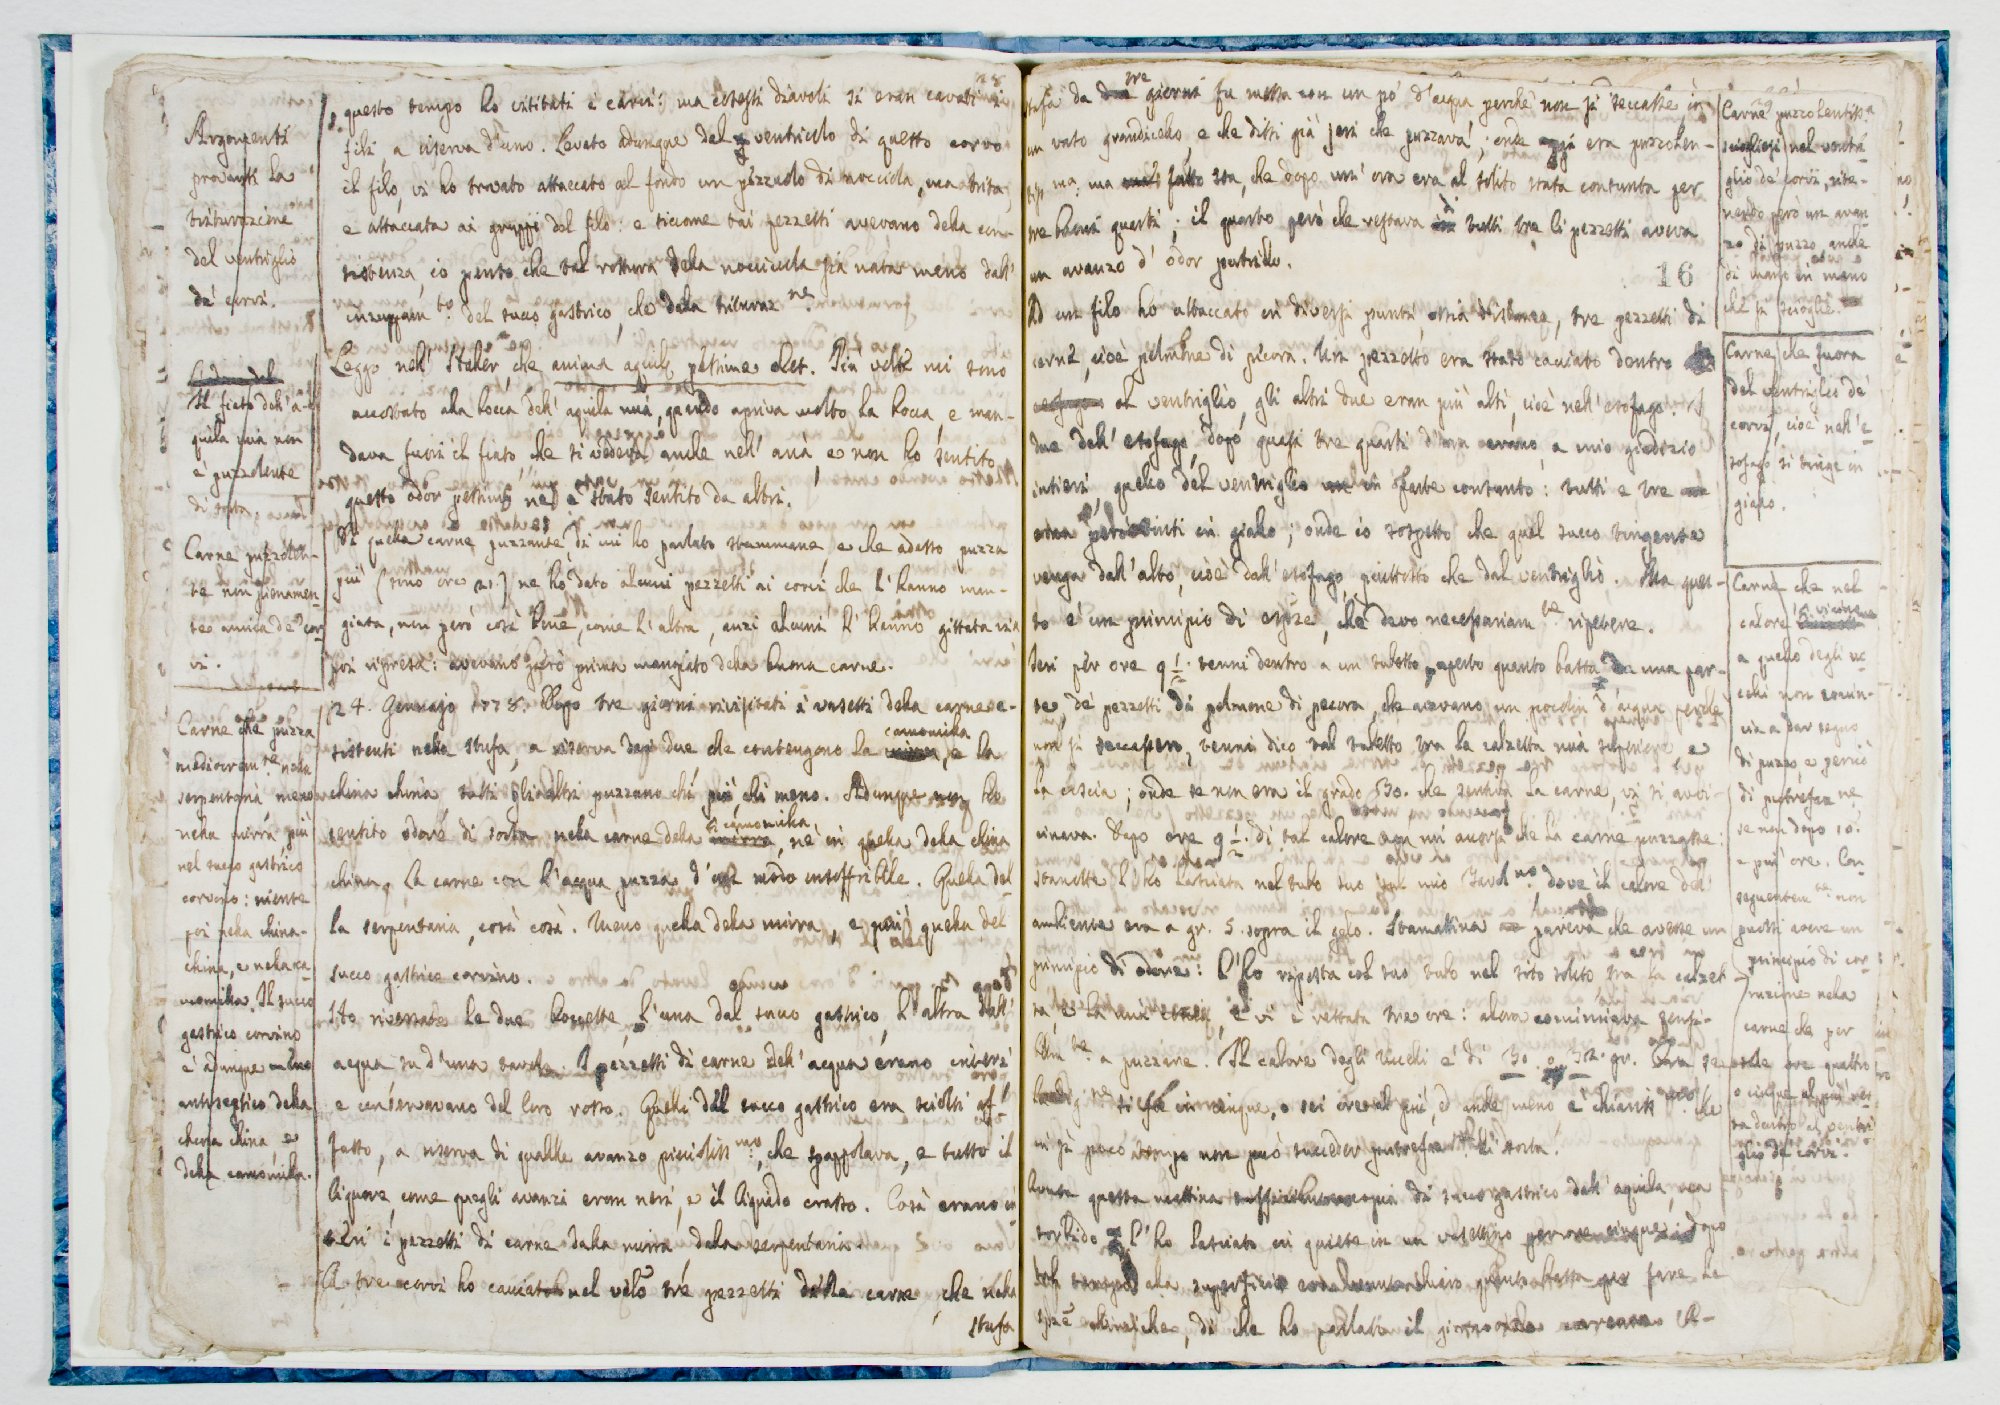 Argomenti
provanti la
triturazione
del ventriglio
de' corvi.
Il fiato dell' a-
quila mia non
è puzzolente
di sorta.
Carne puzzolen-
te non pienamen-
te amica de' cor-
vi.
Carne che puzza
mediocrem.te nella
serpentaria meno
nella mirra, più
nel succo gastrico
corvino: niente
poi nella china-
china, e nella ca-
momilla. Il succo
gastrico corvino
è dunque meno
antiseptico della
china china, e
della camomilla.
questo tempo ho visitati i corvi: ma cotesti diavoli si eran cavati i
fili, a riserva d'uno. Levato adunque dal ventricolo di questo corvo
il filo, vi ho trovato attaccato al fondo un pezzuolo di nocciola, ma trita,
e attaccata ai gruppi del filo: e siccome tai pezzetti avevano della con-
sistenza, io penso che tal rottura della nocciuola sia nata meno dall'
inzuppam.to del succo gastrico, che dalla trituraz.ne
Leggo nell' Haller, che anima aquilę pessime olet. Più volte mi sono
accostato alla bocca dell' aquila mia, quando apriva molto la bocca, e man-
dava fuori il fiato, che si vedeva anche nell' aria, e non ho sentito
questo odor pessimo, nè è stato sentito da altri.
Di quella carne puzzante, di cui ho parlato stammane, e che adesso puzza
più (sono ore 21.) ne ho dato alcuni pezzetti ai corvi che l' hanno man-
giata, non però così bene, come l' altra, anzi alcuni l' hanno gittata via
poi ripresa: avevano però prima mangiato della buona carne.
24. Gennajo 1778. Dopo tre giorni rivisitati i vasetti della carne e-
sistenti nella stufa, a riserva dei due che contengono la camomilla, e la
china china tutti gli altri puzzano chi più, chi meno. Adunque non ho
sentito odore di sorta nella carne della camomilla, nè in quella della china
china. La carne con l'acqua puzza d'un modo insoffribile. Quella del-
la serpentaria, così così. Meno quella della mirra, e più quella del
succo gastrico corvino.
Ho riversate le due boccette, l'una dal succo gastrico, l'altra dall'
acqua su d'una tavola. I pezzetti di carne dell' acqua erano interi
e conservavano del loro rosso. Quelli del succo gastrico era sciolti af-
fatto, a riserva di qualche avanzo picciolis.mo, che spappolava, e tutto il
liquore, come quegli avanzi eran neri, e il liquido crasso. Così erano in-
teri i pezzetti di carne della mirra della serpentaria.
A tre corvi ho cacciato nel vélo tre pezzetti della carne, che nella
stufa
stufa da tre giorni fu messa con un pò d'acqua perchè non si seccasse, in
un vaso grandicello e che dissi già jeri che puzzava; onde oggi era puzzolen-
tis.ma: ma sta, che dopo un' ora era al solito stata consunta per
tre buoni quarti; il quarto però che restava di tutti tre li pezzetti aveva
un avanzo d' odor putrido.
16
Ad un filo ho attaccato in diversi punti, ossia distanze, tre pezzetti di
carne, cioè polmone di pecora. Un pezzetto era stato cacciato dentro
al ventriglio, gli altri due eran più alti, cioè nell' esofago. I
due dell' esofago, dopo quasi tre quarti d'ora erano, a mio giudizio
intieri, quello del ventriglio in parte consunto: tutti e tre
però tinti in giallo; onde io sospetto che quel succo tingente
venga dall'alto, cioè dall'esofago, piuttosto che dal ventriglio. Ma ques-
to è un principio di esp.ze, che devo necessariam.te ripetere.
Jeri per ore 9 1/2. tenni dentro a un tubetto, aperto quanto basta da una par-
te, de' pezzetti di polmone di pecora, che avevano un pocolin d'acqua perchè
non si seccassero, tenni dico tal tubetto tra la calzetta mia superiore e
la coscia; onde se non era il grado 30. che sentiva la carne, vi si avvi-
cinava. Dopo ore 9 1/2. di tal calore non mi accorsi che la carne puzzasse:
Stanotte l'ho lasciata nel tubo suo sul mio Tavol.no dove il calore dell'
ambiente era a gr. 5. sopra il gelo. Stamattina pareva che avesse un
principio di odore: l'ho riposta col suo tubo nel sito solito tra la calzet-
ta, e la mia coscia, e vi è restata tre ore: allora cominciava sensi-
bilm.te a puzzare. Il calore degli Uccelli è di 30. o 32. gr. Ora se
la dig.ne si fa in cinque, o sei ore al più, ed anche meno è chiaris.mo che
in sì poco tempo non può succeder putrefaz.ne di sorta.
Avuta questa mattina di succo gastrico dell' aquila, ma
torbido l'ho lasciato in quiete in un vasettino per ore cinque, dopo
tal tempo alla superficie era chiaro quanto basta per fare le
spze chimiche, di che ho parlato il giorno
Carne puzzolentiss.a
sciogliesi nel ventri-
glio de' corvi, rite-
nendo però un avan-
zo di puzzo anche
di mano in mano
che si scioglie.
Carne che fuora
del ventriglio de'
corvi, cioè nell' e-
sofago si tinge in
giallo.
Carne che nel
calore vicino
a quello degli uc-
celli non comin-
cia a dar segno
di puzzo, e perciò
di putrefaz.ne
se non dopo 10.
e più ore. Con-
seguentem.te non
puossi avere un
principio di cor-
ruzione nella
carne che per
sole ore quattro
o cinque al più res-
ta dentro al ventri-
glio de' corvi.